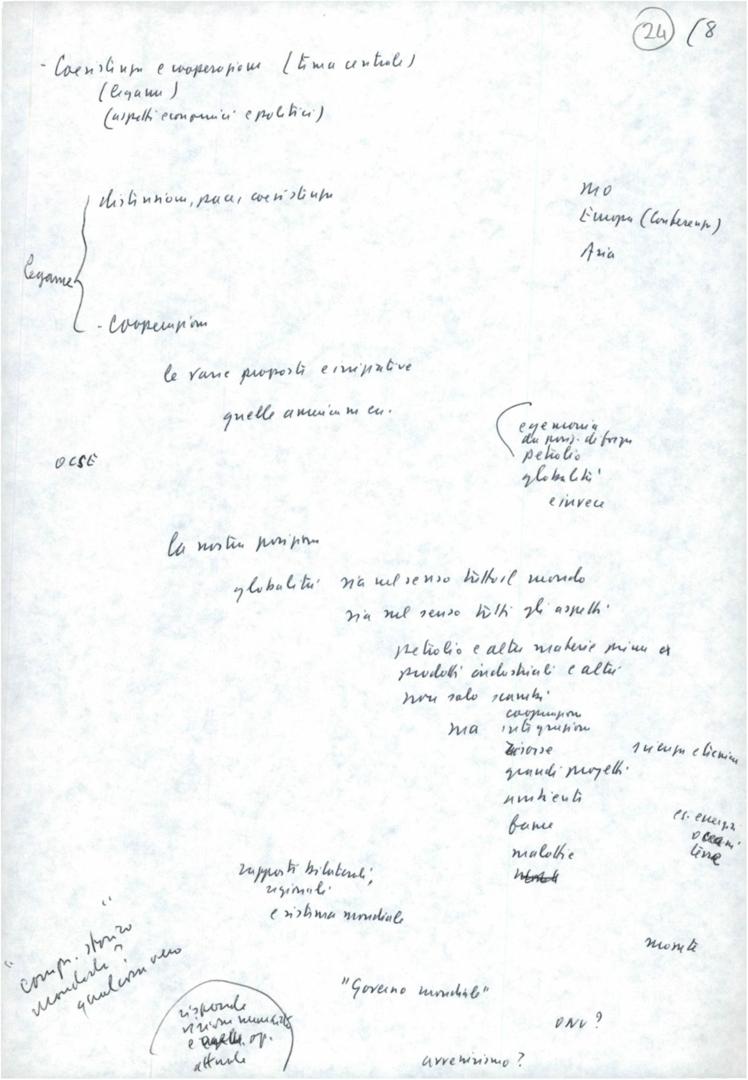 24 (8
- Coesistenza e cooperazione (tema centrale)
(legami)
(aspetti economici e politici)
distensione, pace, coesistenza
MO
Europa (Conferenza)
Asia
legame
- Cooperazione
le varie proposte e iniziative
quelle americane ecc.
egemonia
da posiz. di forza
petrolio
OCSE
globalità
e invece
la nostra posizione
globalità sia nel senso tutto il mondo
sia nel senso tutti gli aspetti
petrolio e altre materie prime
prodotti industriali e altri
non solo scambi
cooperazione
ma integrazione
risorse scienza e tecnica
grandi progetti
ambienti
fame es. energia
oceani
malattie terre
rapporti bilaterali,
regionali
e sistema mondiale
monete
"compr. storico
mondiale"?
qualcosa di vero
"Governo mondiale"
risponde
visione
e op.
attuale
ONU?
avvenirismo?